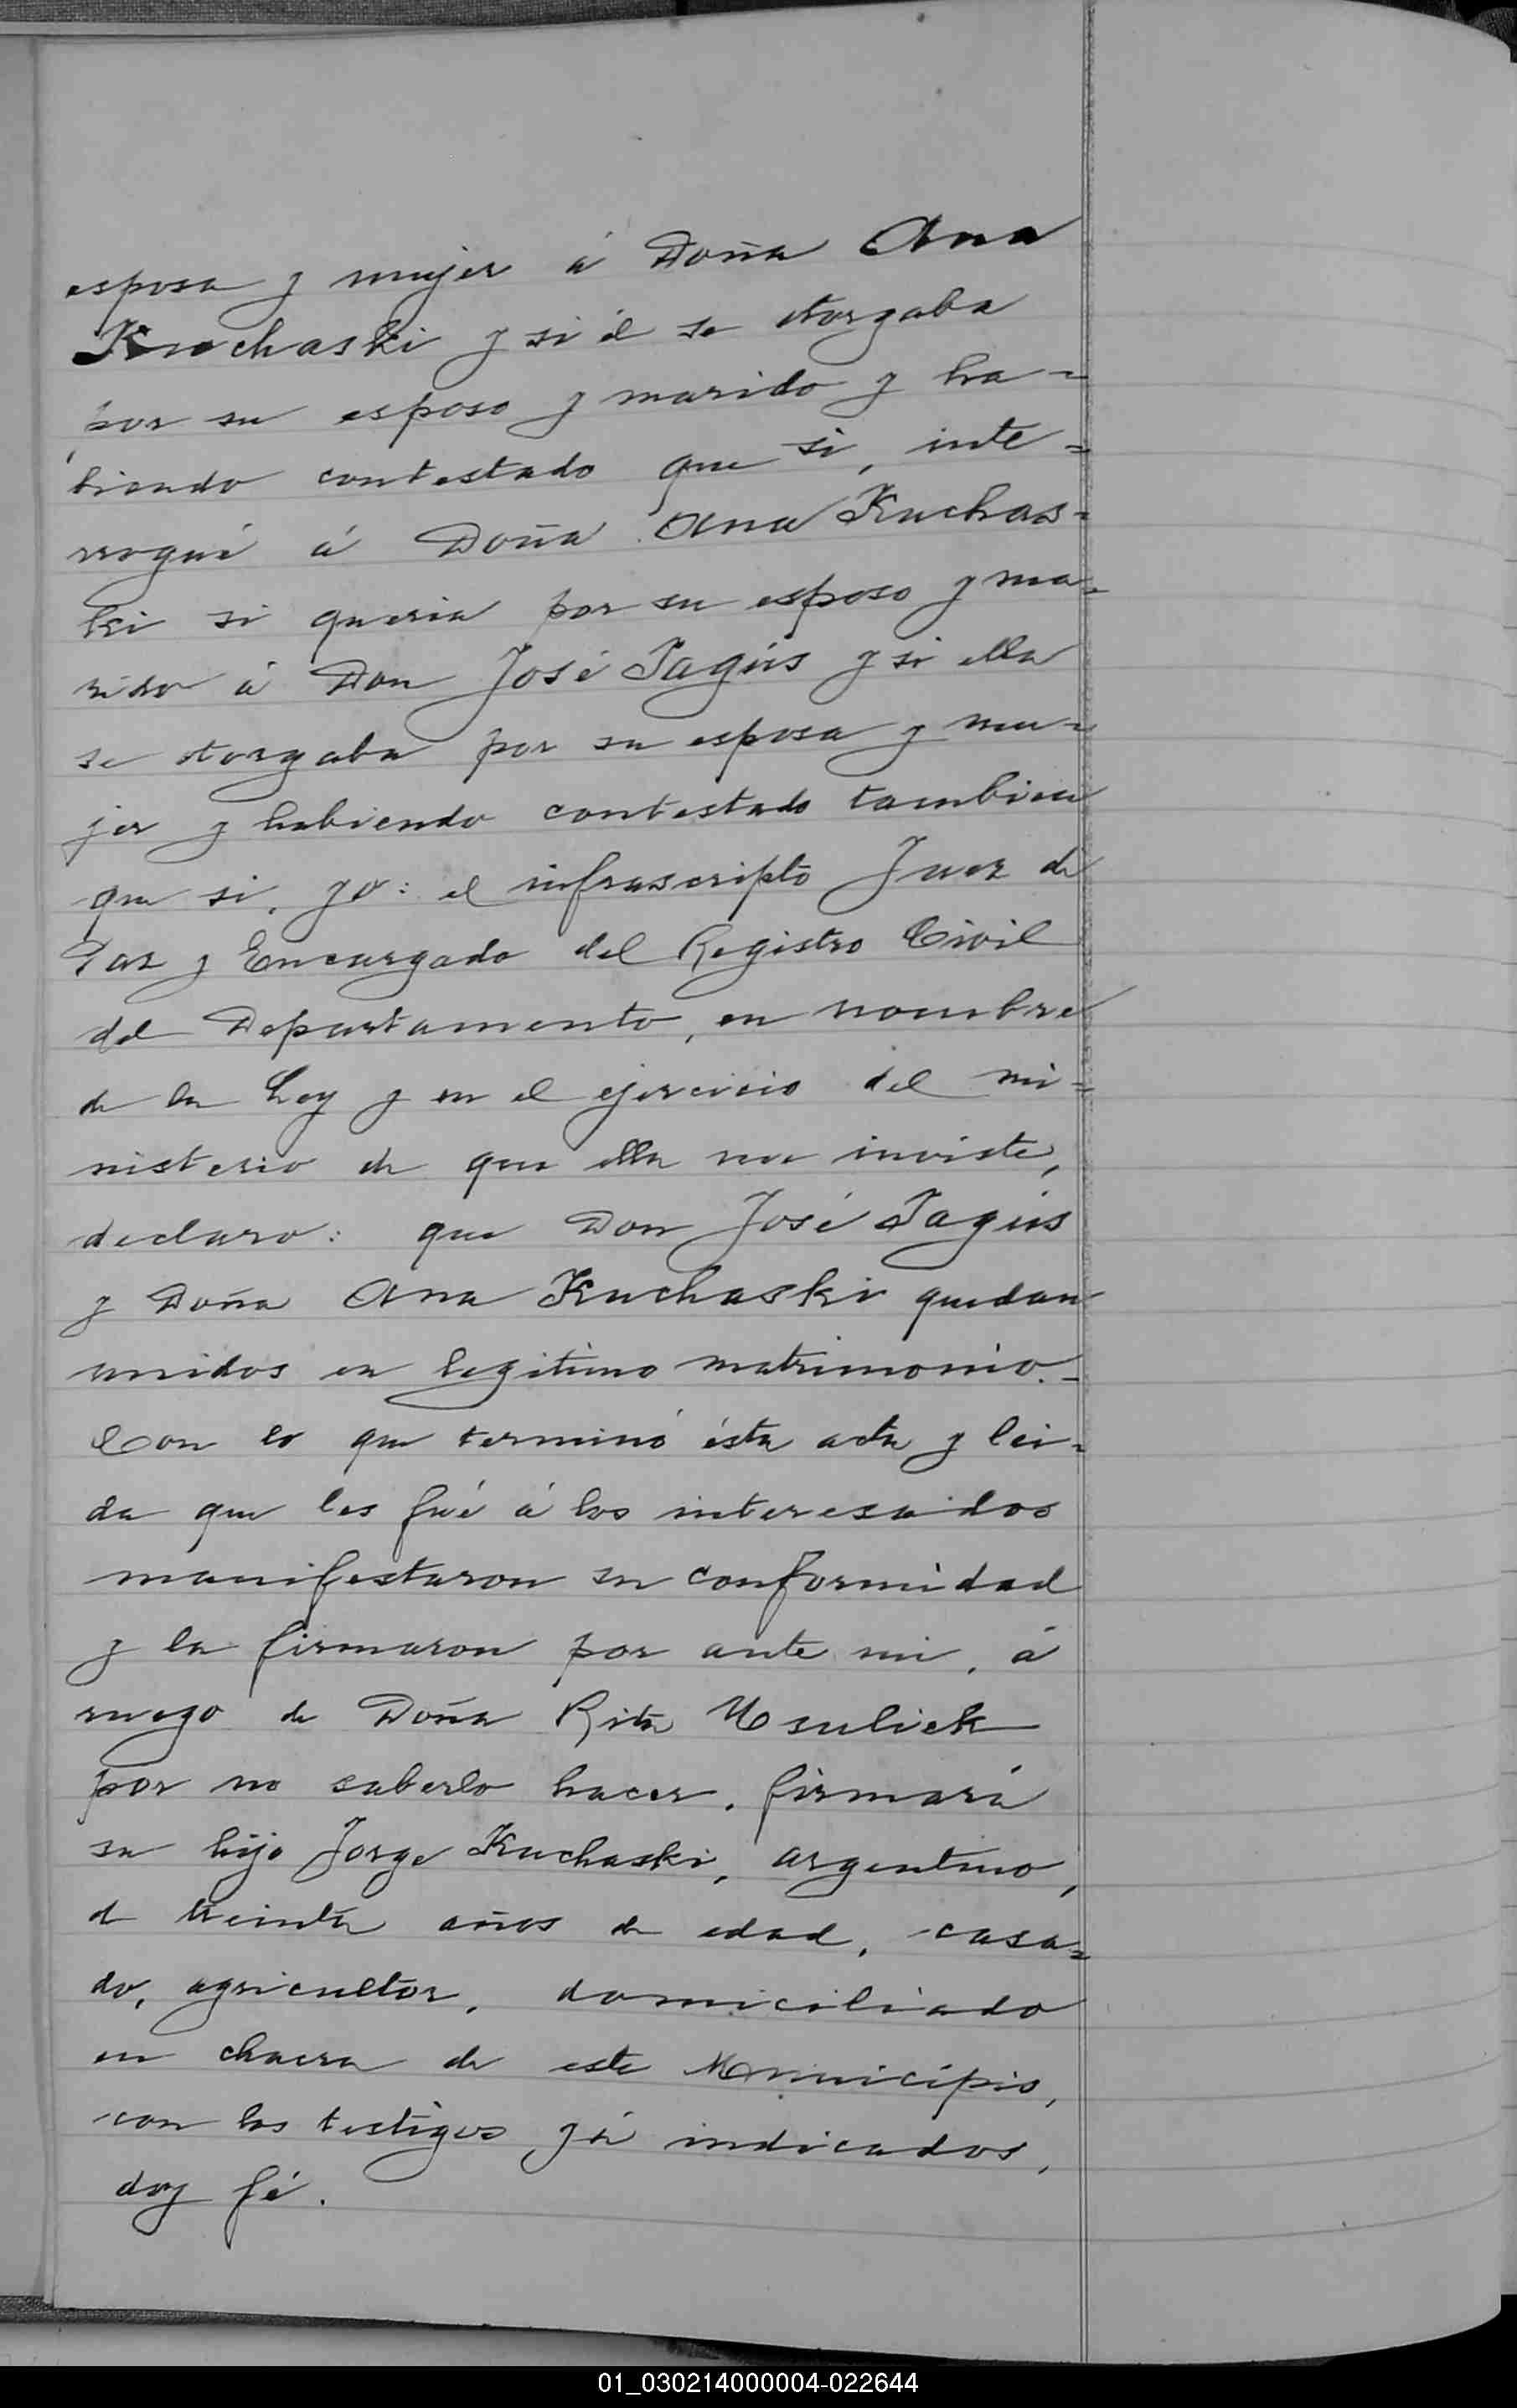 esposa y mujer á Doña Ana
Kuchaski y si él se otorgaba
por su esposo y marido y ha=
biendo contestado que si, inte=
rrogué á Doña Ana Kuchas=
ki si queria por su esposo y ma=
rido á Don José Pagés y si ella
se otorgaba por su esposa y mu=
jer y habiendo contestado tambien
que si, yo: el infrascripto Juez de
Paz y Encargado del Registro Civil
del Departamento, en nombre
de la Ley y en el ejercicio del mi=
nisterio de que ella me inviste,
declaro: que Don José Pagés
y Doña Ana Kuchaski quedan
unidos en legitimo matrimonio.-
Con lo que terminó ésta acta y lei=
da que les fué á los interesados
manifestaron su conformidad
y la firmaron por ante mi, á
ruego de Doña Rita
por no saberlo hacer, firmará
su hijo Jorge Kuchaski, argentino,
de treinta años de edad, casa=
do, agricultor, domiciliado
en chacra de este Municipio,
con los testigos yá indicados,
doy fé.
01_030214000004-022644